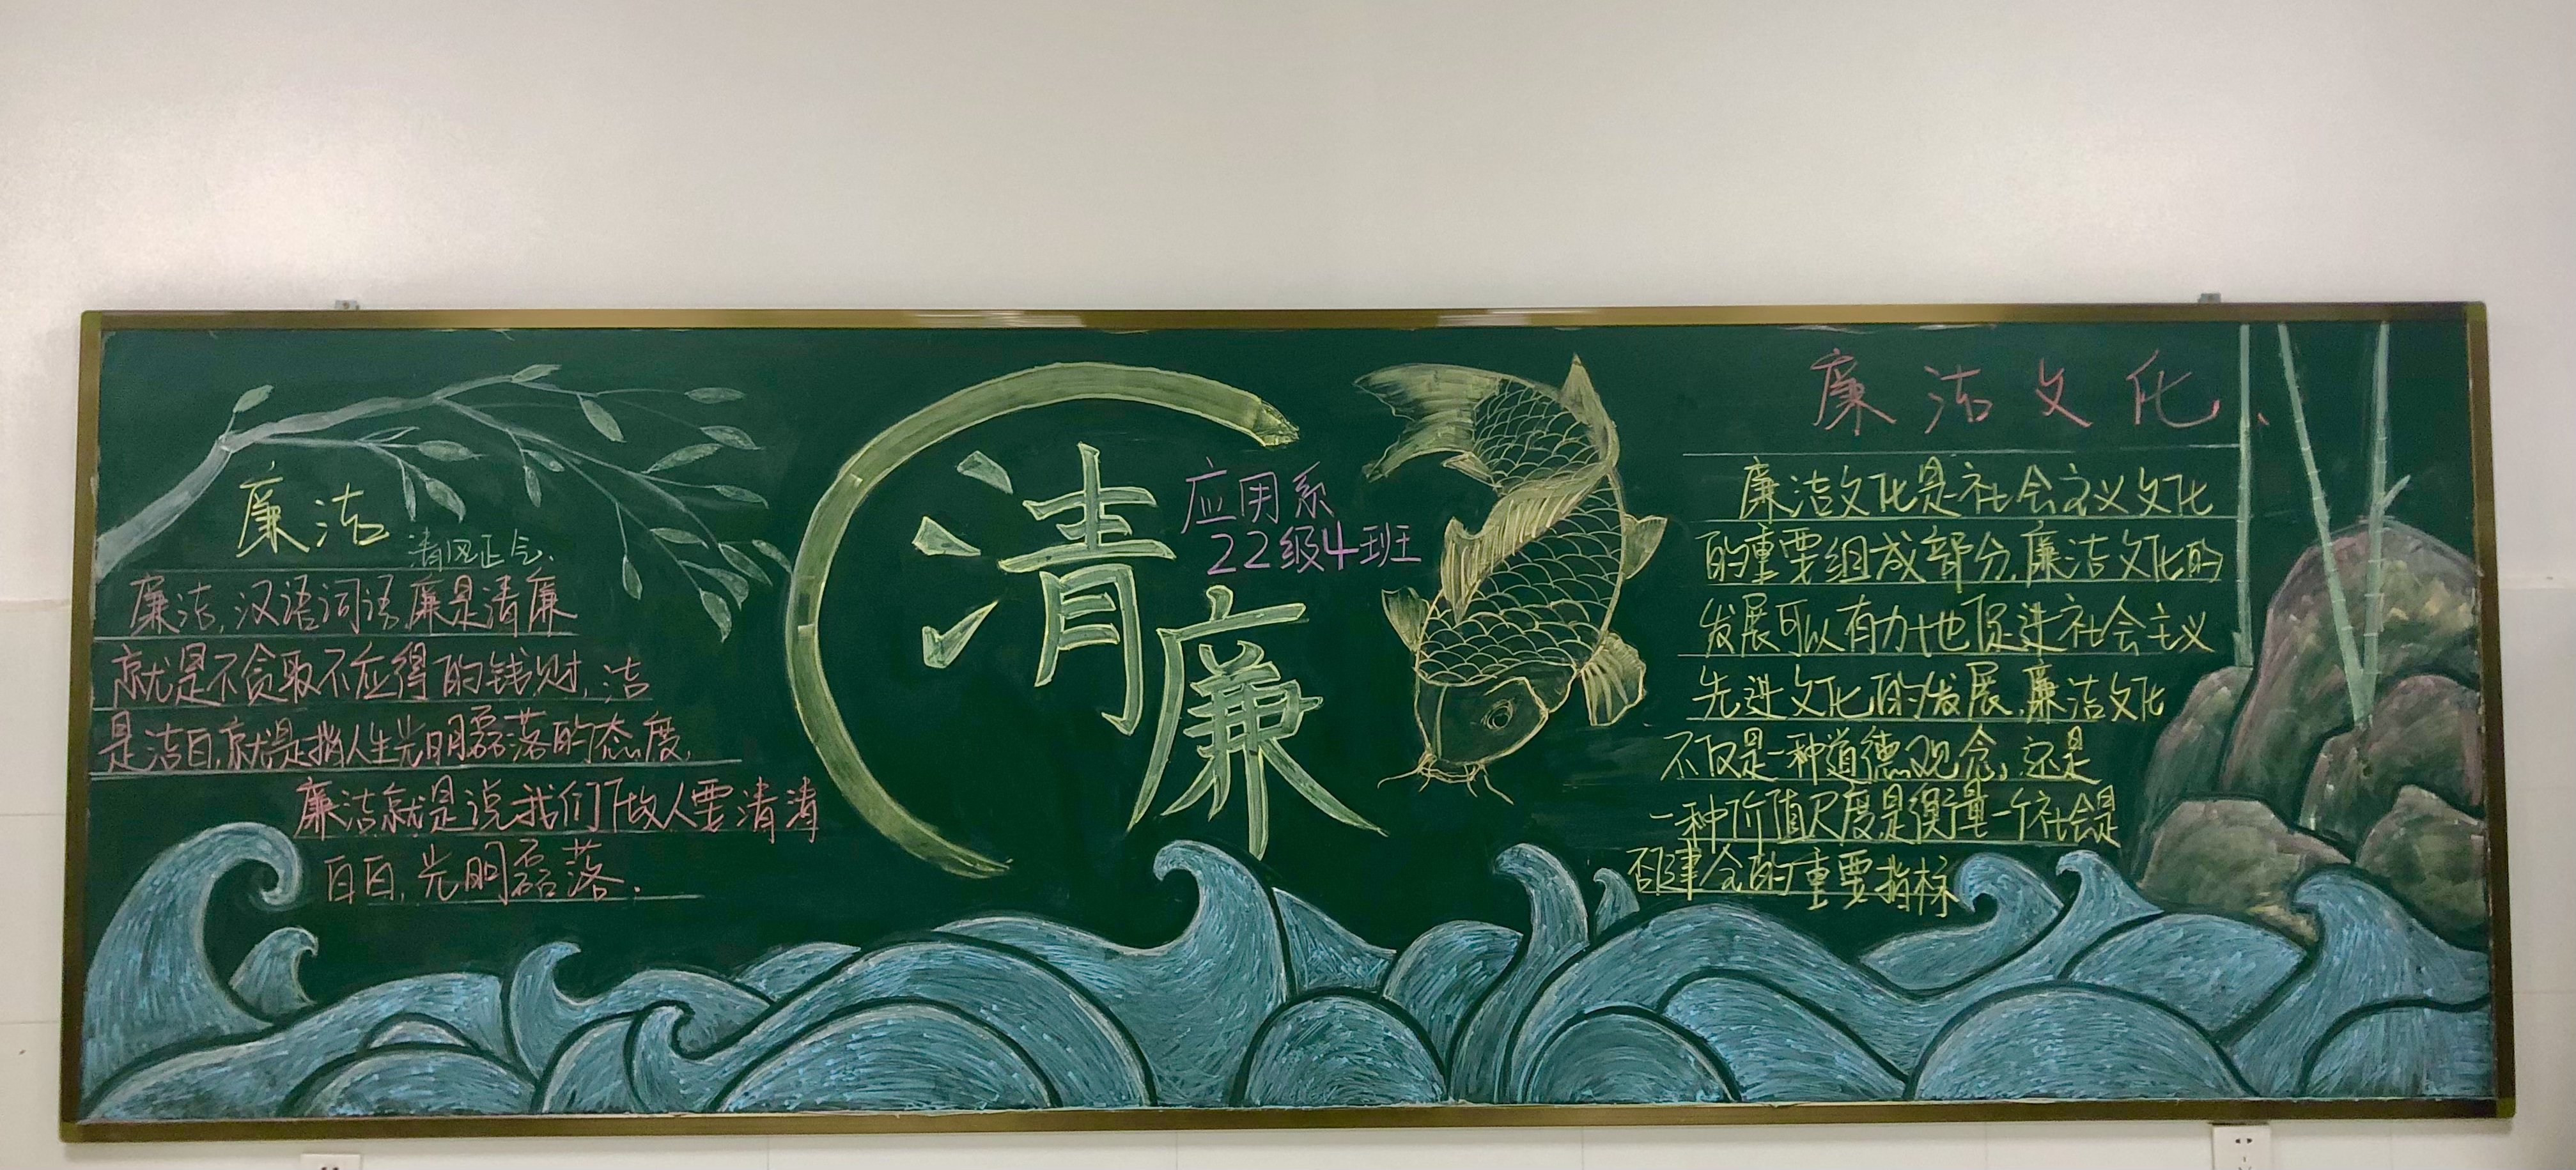 廉洁
清风正气
廉洁,汉语词语,廉是清廉
就是不贪取不应得的钱财,洁
是洁白,就是指人生光明磊落的态度,
廉洁就是说我们做人要清清
白白,光明磊落.
清廉
应用系
22级4班
廉洁文化
廉洁文化是社会主义文化
的重要组成部分,廉洁文化的
发展可以有力地促进社会主义
先进文化的发展,廉洁文化
不仅是一种道德观念,还是
一种价值尺度,是衡量一个社会是
否健全的重要指标